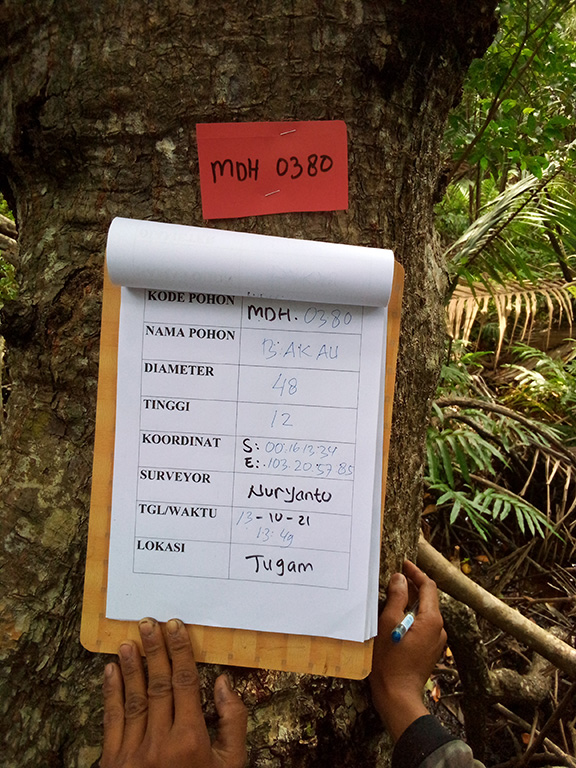 MDH 0380
KODE POHON MDH. 0380
NAMA POHON BAKAU
DIAMETER 48
TINGGI 12
KOORDINAT S: 00.16.13.34
E: .103.20.57.85
SURVEYOR Nuryanto
TGL/WAKTU 13-10-21
13:49
LOKASI Tugam